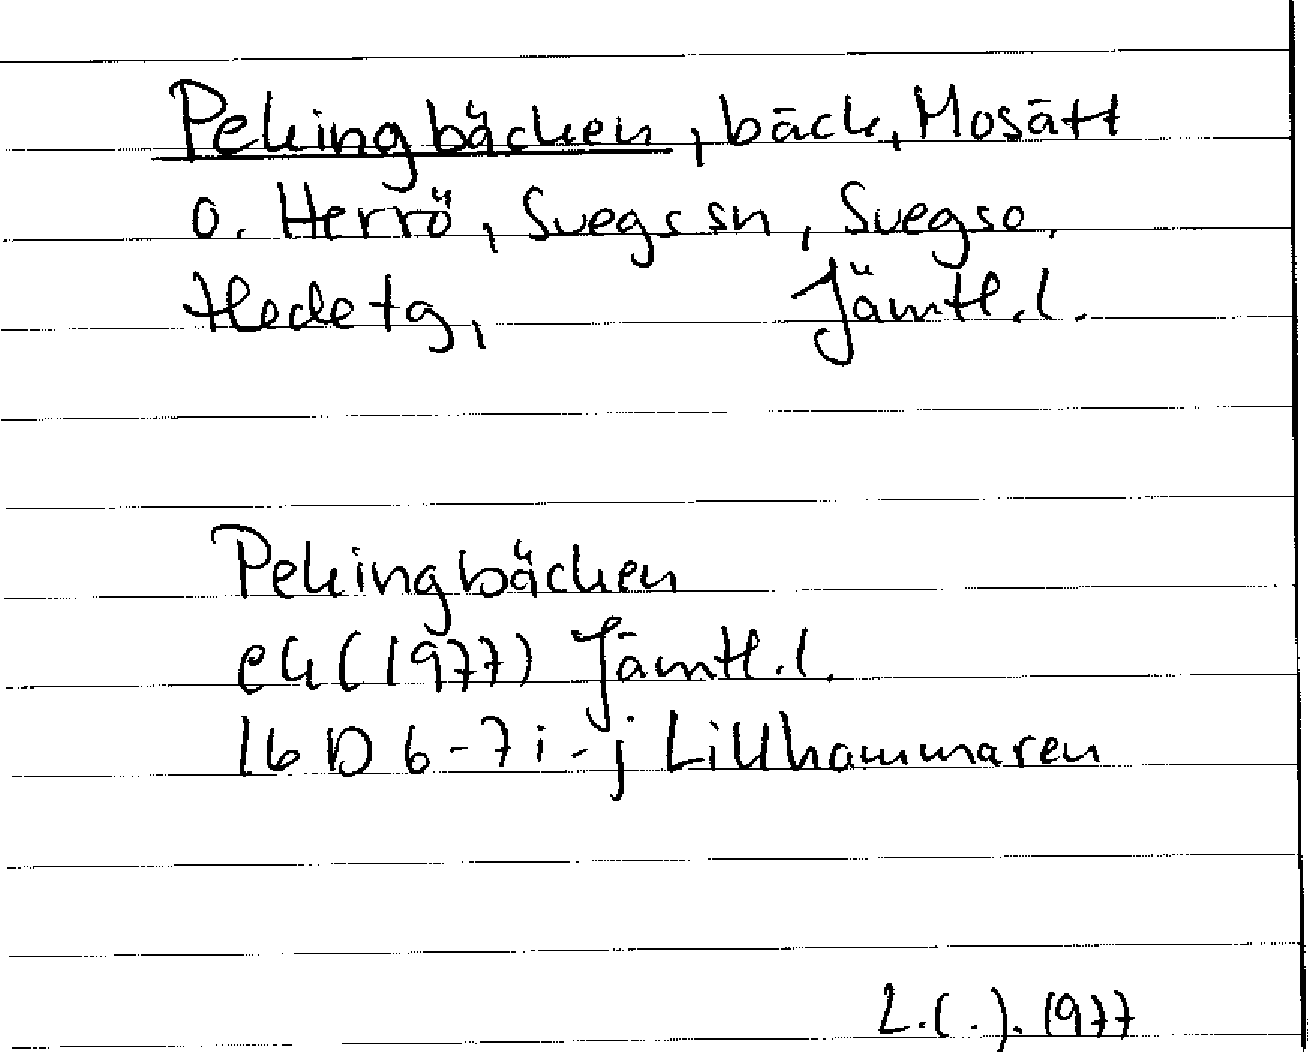 Pekingbäcken, bäck, Mosätt
o. Herrö, Svegs sn, Svegs o.
Hede tg, Jämtl. l.
Pekingbäcken
ek (1977) Jämtl. l.
16 D 6-7 i-j Lillhammaren
L.( ). 1977